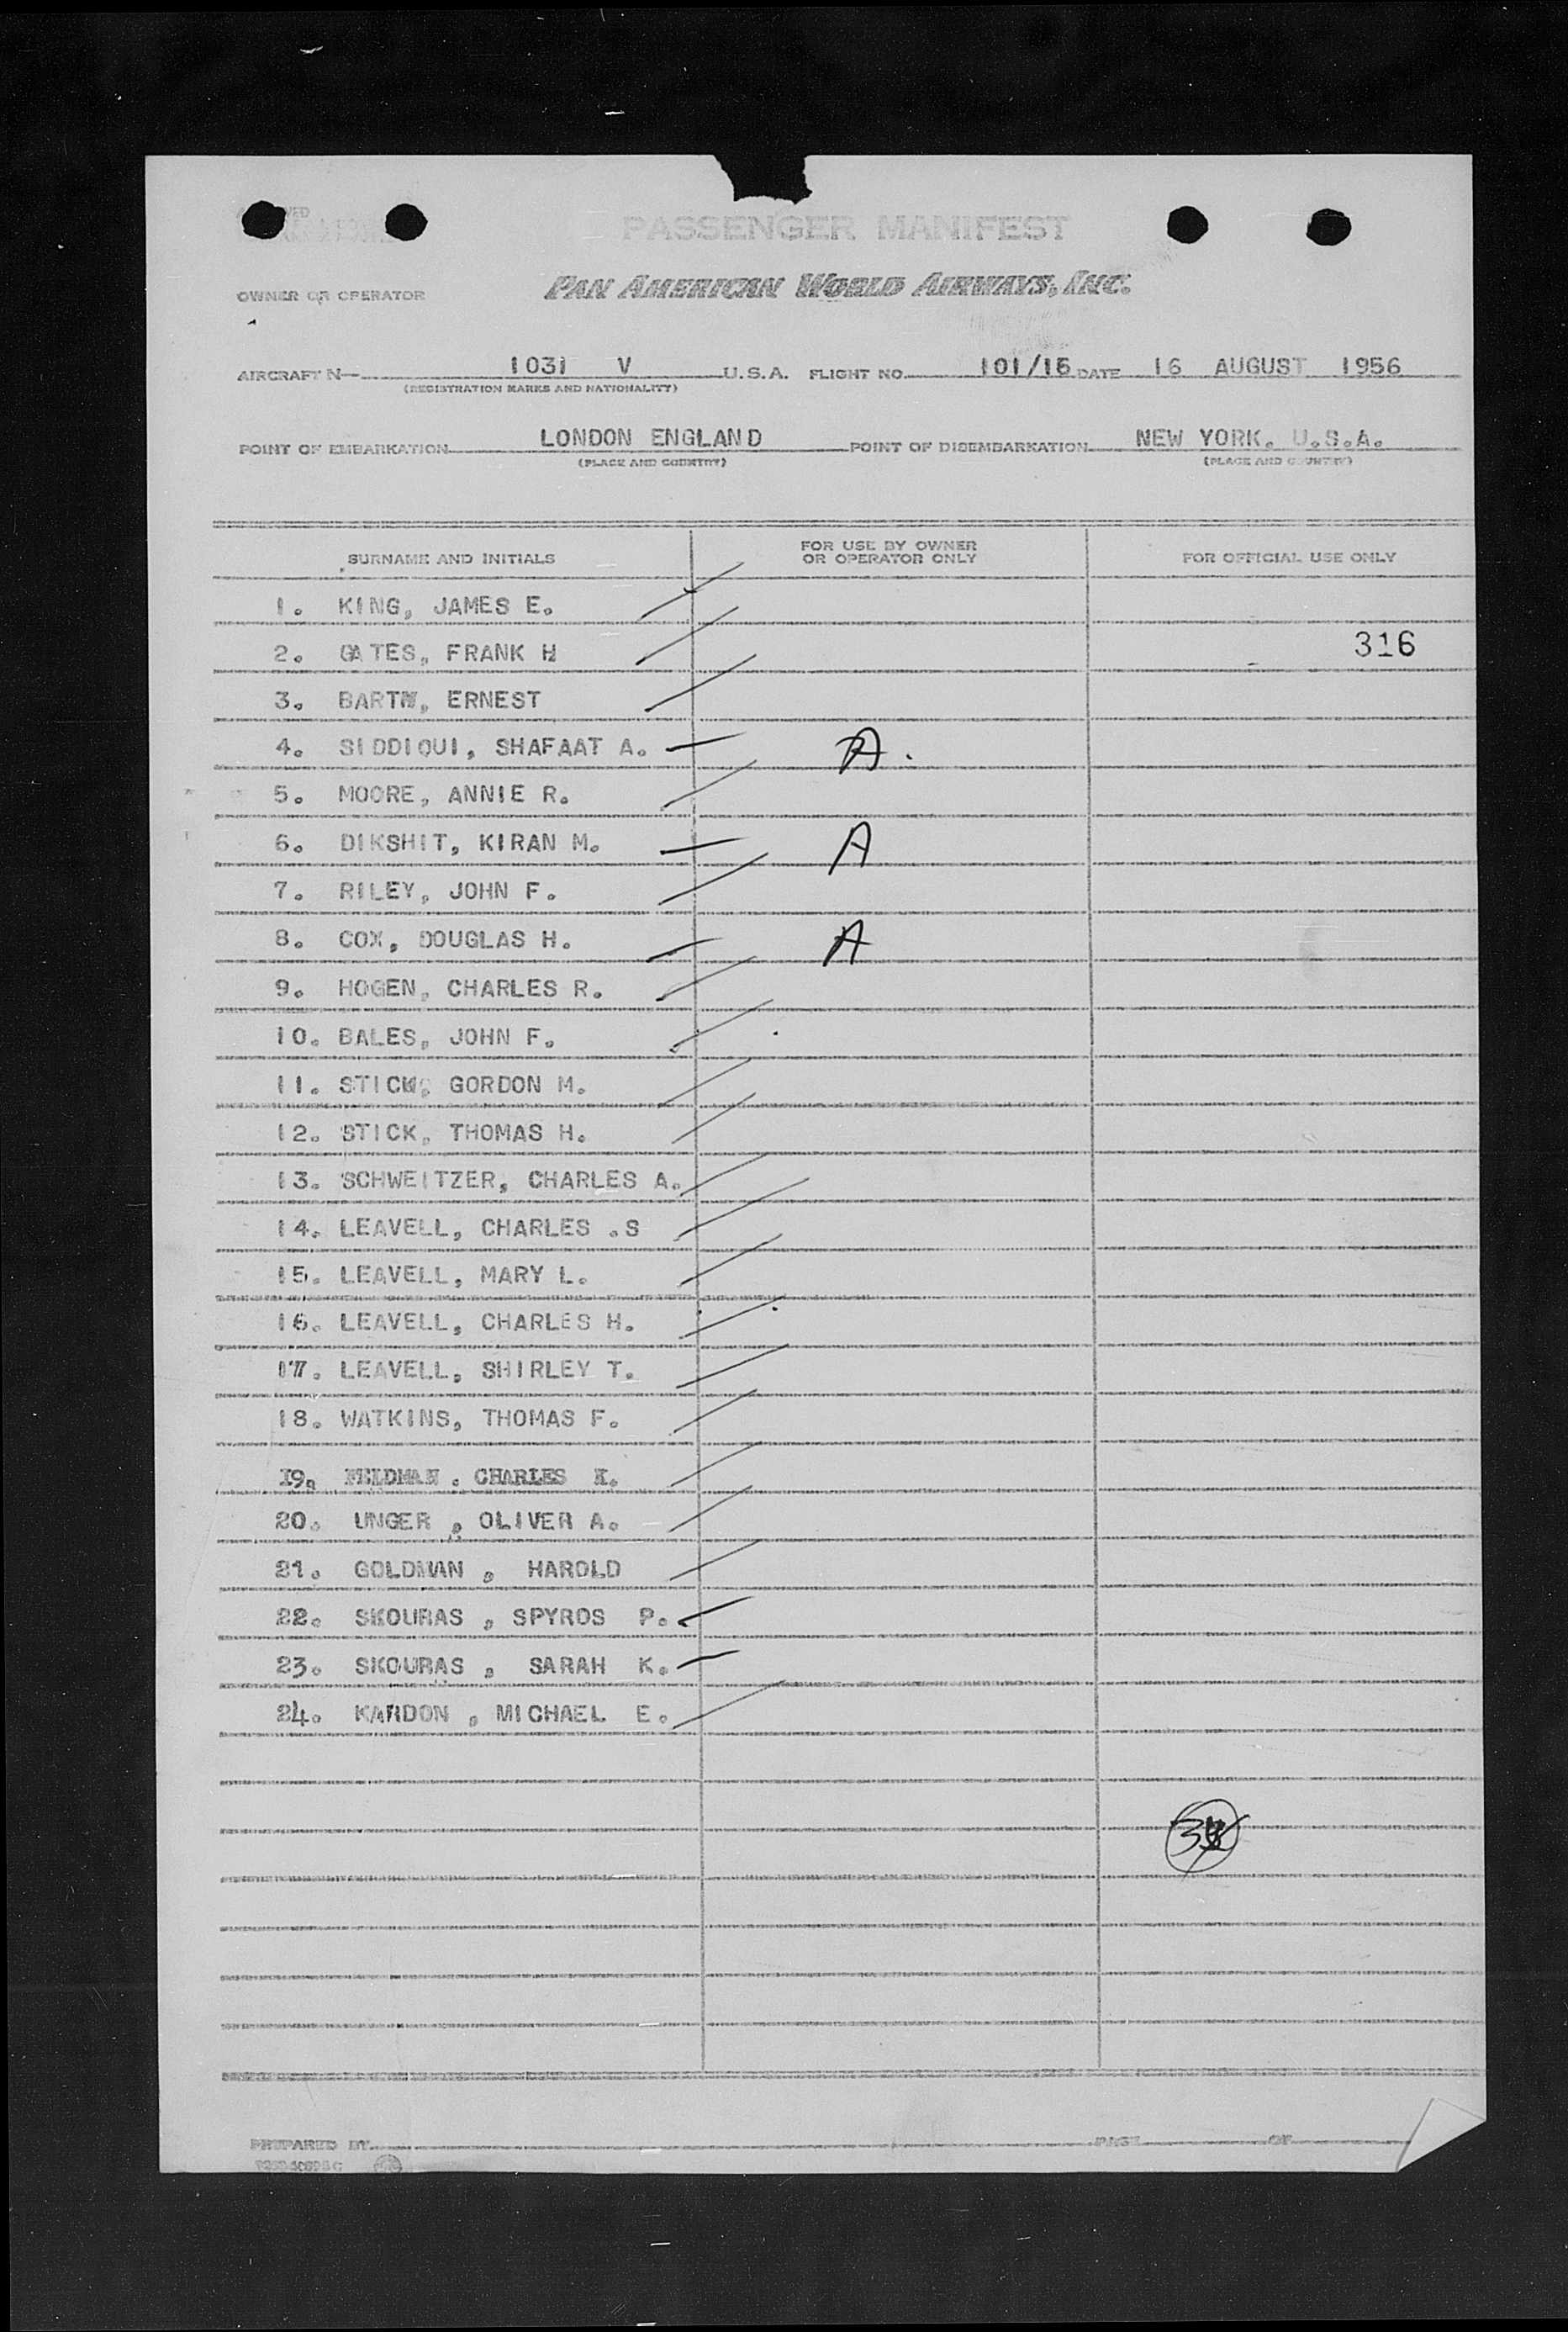 PASSENGER MANIFEST
OWNER OR OPERATOR PAN AMERICAN WORLD AIRWAYS, INC.
AIRCRAFT N— 1031 V U.S.A. FLIGHT NO. 101/16 DATE 16 AUGUST 1956
(REGISTRATION MARKS AND NATIONALITY)
POINT OF EMBARKATION LONDON ENGLAND POINT OF DISEMBARKATION NEW YORK. U.S.A.
(PLACE AND COUNTRY) (PLACE AND COUNTRY)
SURNAME AND INITIALS FOR USE BY OWNER OR OPERATOR ONLY FOR OFFICIAL USE ONLY
1. KING, JAMES E.
2. GATES, FRANK H 316
3. ERNEST
4. SIDDIQUI, SHAFAAT A. A.
5. MOORE, ANNIE R.
6. DIKSHIT, KIRAN M. A
7. RILEY, JOHN F.
8. COX, DOUGLAS H. A
9. HOGEN, CHARLES R.
10. BALES, JOHN F.
11. GORDON M.
12. STICK, THOMAS H.
13. SCHWEITZER, CHARLES A.
14. LEAVELL, CHARLES .S
15. LEAVELL, MARY L.
16. LEAVELL, CHARLES H.
17. LEAVELL, SHIRLEY T.
18. WATKINS, THOMAS F.
19. FELDMAN . CHARLES
20. UNGER , OLIVER A.
21. GOLDMAN , HAROLD
22. SKOURAS , SPYROS P.
23. SKOURAS , SARAH K.
24. KARDON , MICHAEL E.
PREPARED BY PAGE OF